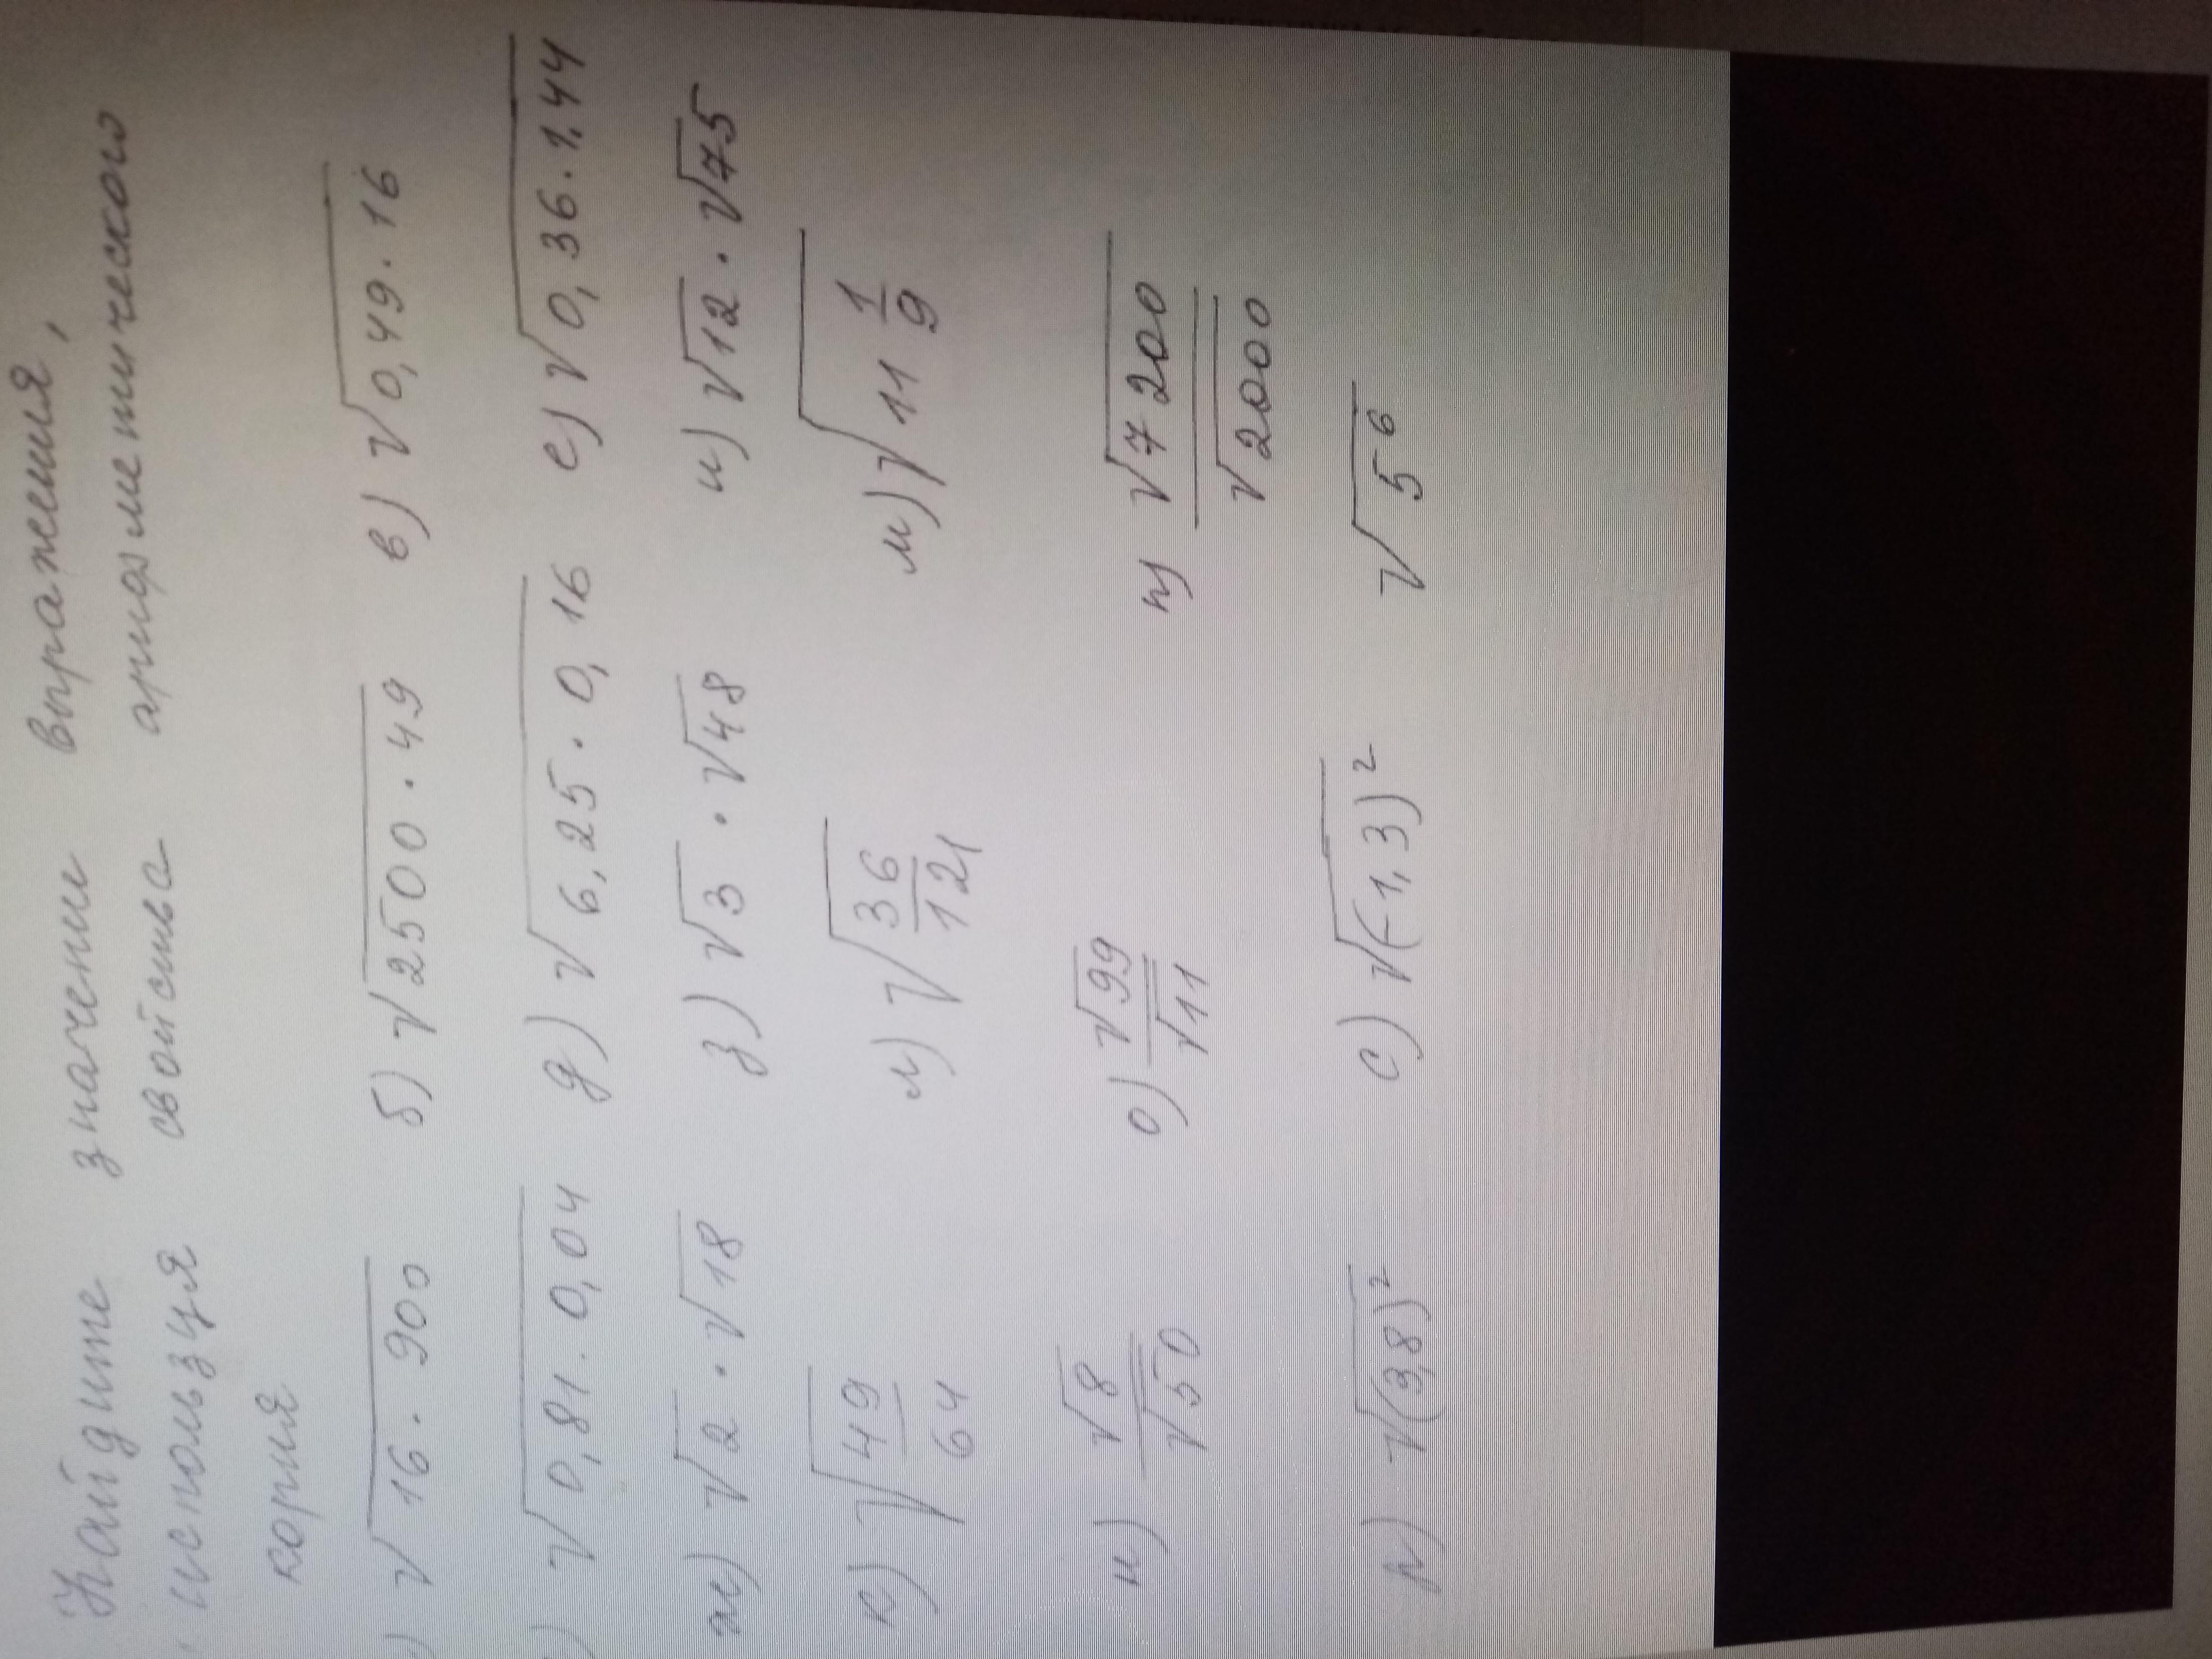 Найдите значение выражения,
используя свойства арифметического
корня
) √16·900 б) √2500·49 в) √0,49·16
) √0,81·0,04 д) √6,25·0,16 е) √0,36·1,44
ж) √2·√18 з) √3·√48 и) √12·√75
к) √49/64 л) √36/121 м) √11 1/9
н) √8/√50 о) √99/√11 п) √7200/√2000
р) √(3,8)² с) √(-1,3)² √5⁶